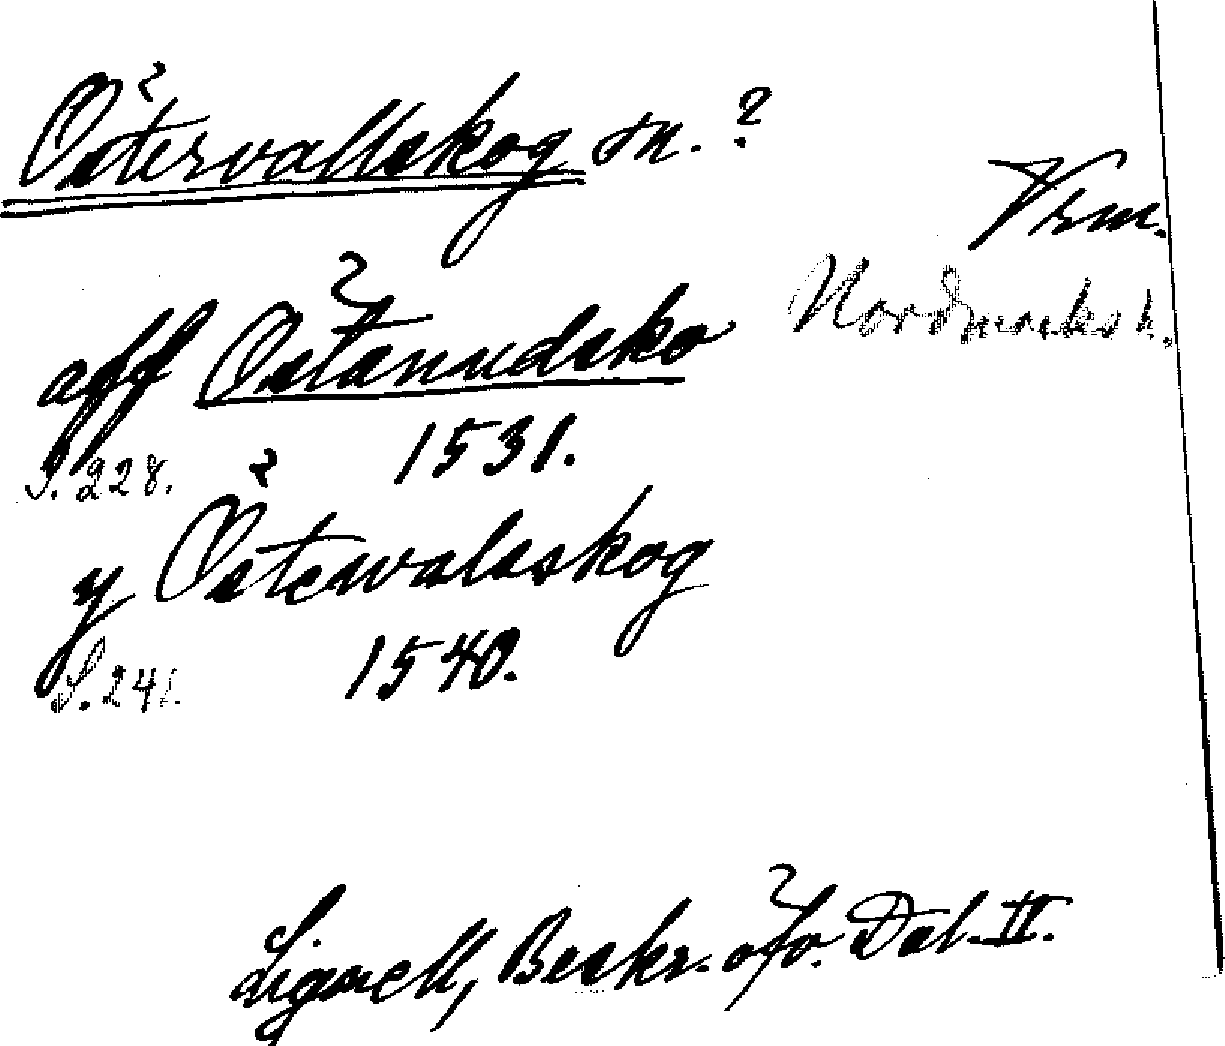 Östervallskog sn.?
Vrm.
Nordmarks h.
aff Östanudsko
1531.
S. 228.
y Östervalaskog
1540.
S. 241.
Lignell, Beskr. öfv. Dal. II.